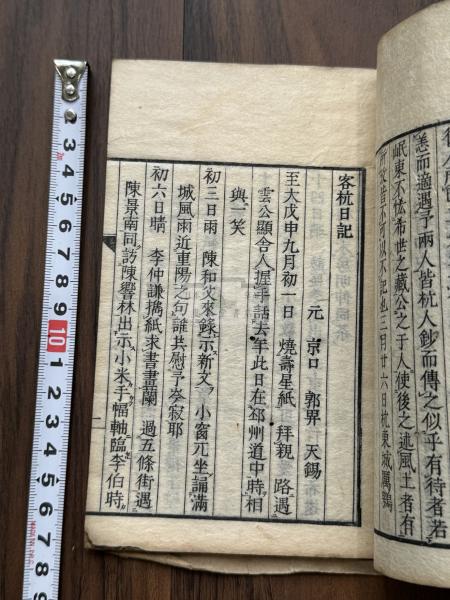 恙而適遇予兩人皆杭人鈔而傳之似乎有待者若
岷東不恡希世之藏公之于人使後之述風土者有
所攷皆不可以不記也二月廿六日杭東城厲鶚
客杭日記
元 京口 郭畀 天錫
至大戊申九月初一日 燒壽星紙 拜親 路遇
雲公顯舍人握手話去年此日在邳州道中時相
與一笑
初三日雨 陳和父來錄示新文 小窗兀坐誦滿
城風雨近重陽之句誰共慰予岑寂耶
初六日晴 李仲謙攜紙求書畫蘭 過五條街遇
陳景南同訪陳響林出示小米手幅軸臨李伯時
2 3 4 5 6 7 8 9 10 1 2 3 4 5 6 7 8 9